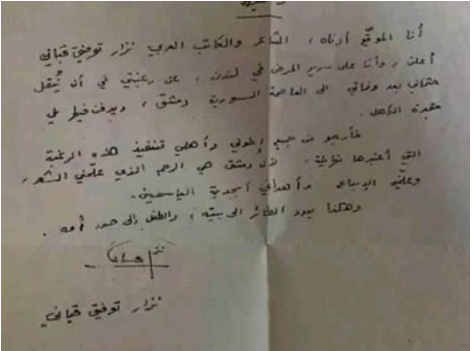 أنا الموقّع أدناه، الشاعر والكاتب العربي نزار توفيق قباني
أعلن، وأنا على سرير المرض في لندن، عن رغبتي في أن يُنقل
جثماني بعد وفاتي الى العاصمة السورية دمشق، ويدفن فيها في
مقبرة الأهل.
فأرجو من جميع وأهلي تنفيذ هذه الرغبة
التي أعتبرها نهائية. لأن دمشق هي الرحم الذي علّمني الشعر،
وعلّمني الإبداع وأهداني أبجدية الياسمين.
وهكذا يعود الطائر الى بيته، والطفل إلى صدر أمه.
نزار قباني
نزار توفيق قباني